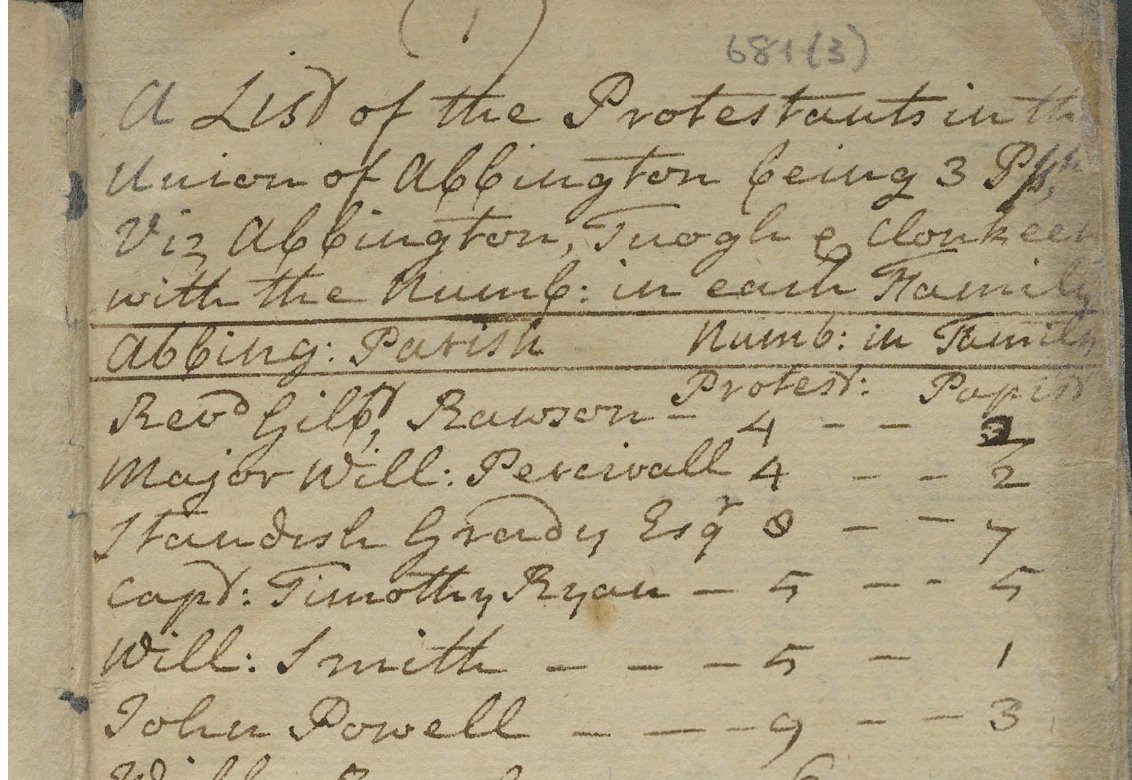 (1)
681(3)
A List of the Protestants in the
Union of Abbington being 3 Psh
Viz Abbington, Tuogh & Clonkeen
with the Numb: in each Family
Abbing: Parish Numb: in Family
Protest: Papist
Revd Gilbt, Rawson - 4 - -
Major Will: Percivall 4 - - 2
Standish Grady Esqr 8 - - 7
Capt: Timothy Ryan - 5 - - 5
Will: Smith - - - - 5 - 1
John Powell - - - - 9 - - 3